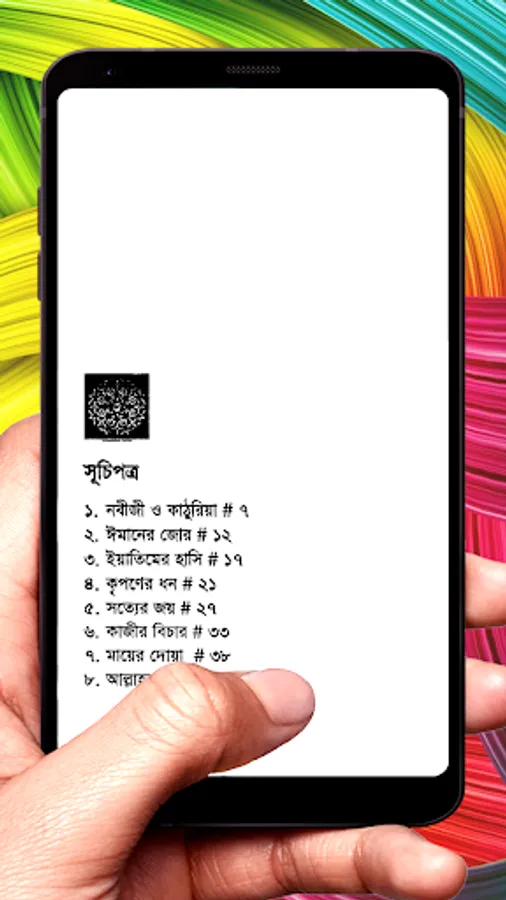 সূচিপত্র
১. নবীজী ও কাঠুরিয়া # ৭
২. ঈমানের জোর # ১২
৩. ইয়াতিমের হাসি # ১৭
৪. কৃপণের ধন # ২১
৫. সত্যের জয় # ২৭
৬. কাজীর বিচার # ৩৩
৭. মায়ের দোয়া # ৩৮
৮.